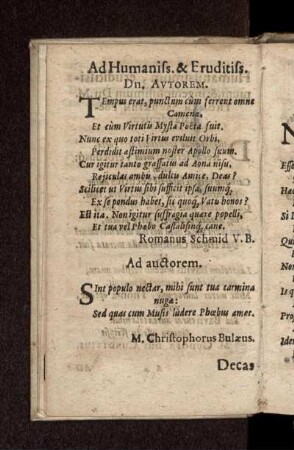 Ad Humaniss. & Eruditiss.
Dn. AVTOREM.
TEmpus erat, punctum cùm ferrent omne
Camenæ,
Et cùm Virtutis Mysta Poëta fuit.
Nunc ex quo toti Virtus eviluit Orbi,
Perdidit æstimium noster Apollo suum.
Cur igitur tanto grassatus ad Aona nisu,
Rejiculas ambis, dulcis Amice, Deas?
Scilicet ut Virtus sibi sufficit ipsa, suumq;
Ex se pondus habet, sic quoq, Vatis honos?
Est ita. Non igitur suffragia quære popelli,
Et tua vel Phœbo Castalisinq; cane.
Romanus Schmid V. B.
Ad auctorem.
SInt populo nectar, mihi sunt tua carmina
nugæ:
Sed quas cum Musis ludere Phœbus amet.
M. Christophorus Bulæus.
Decas